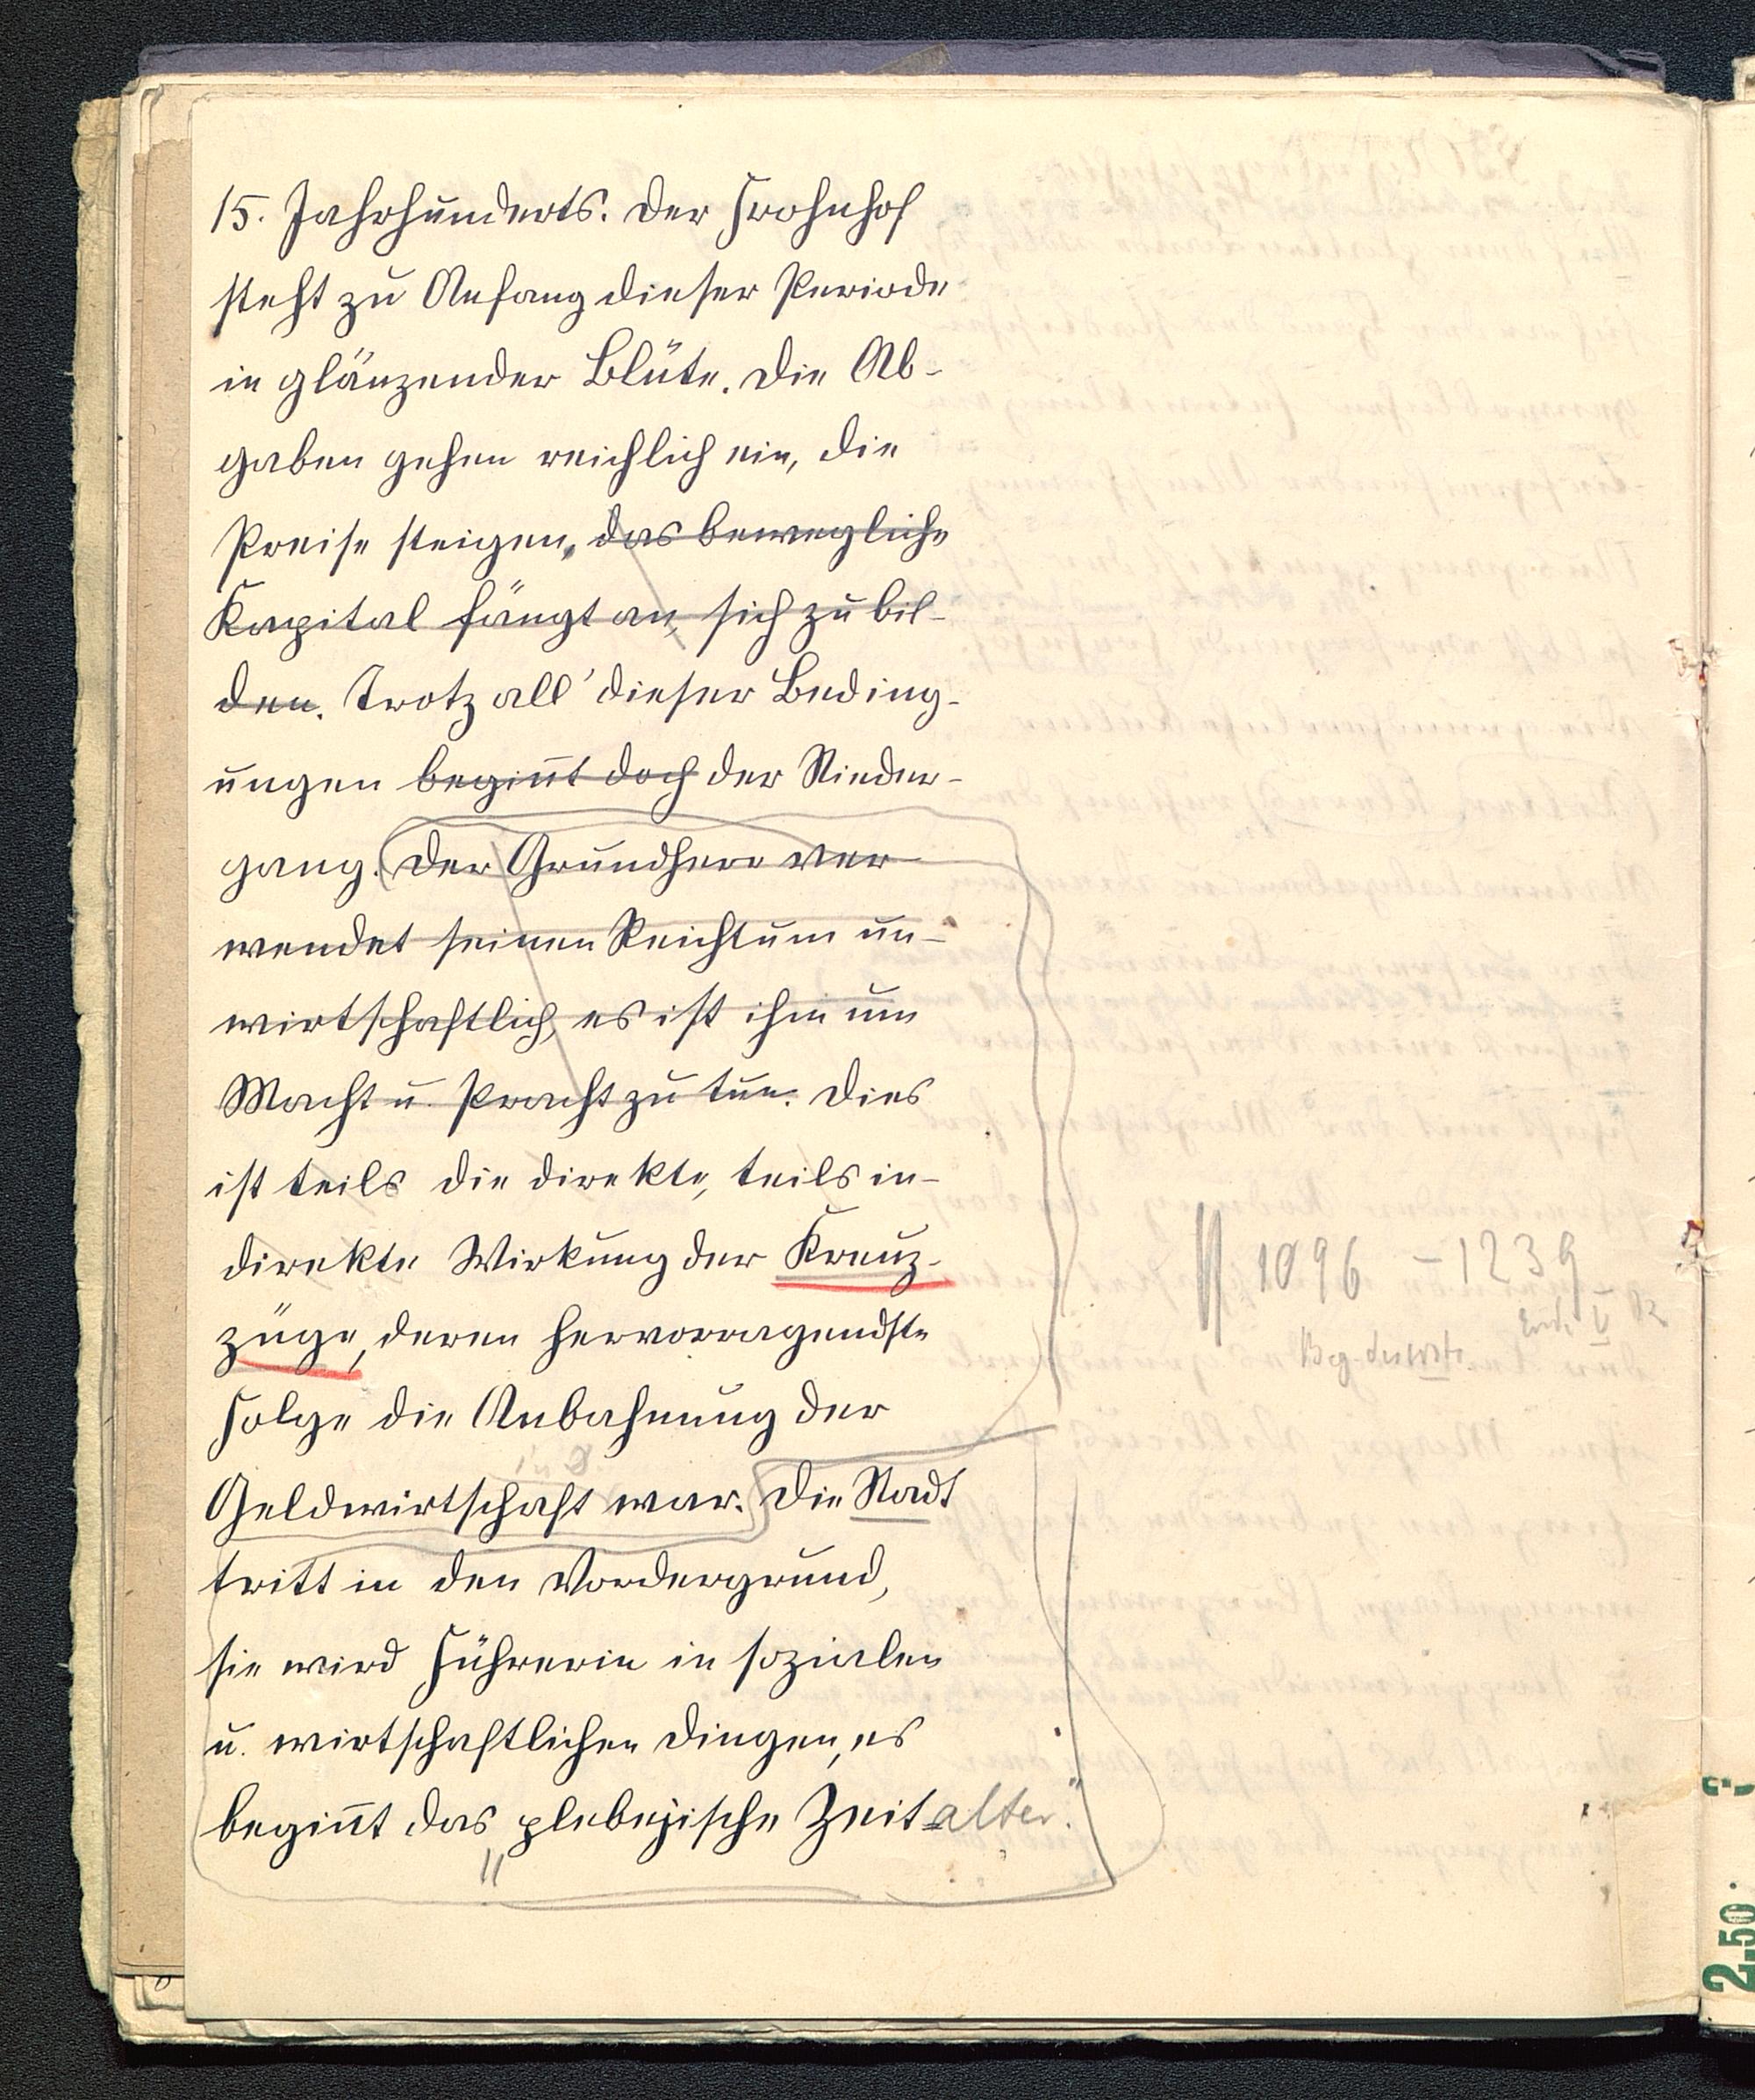 15. Jahrhunderts. Der Frohnhof
steht zu Anfang dieser Periode
in glänzender Blüte. Die Ab-
gaben gehen reichlich ein, die
Preise steigen, das bewegliche
Kapital fängt an, sich zu bil-
den. Trotz all' dieser Beding-
ungen begin̄t doch der Nieder-
gang. Der Grundherr ver-
wendet seinen Reichtum un-
wirtschaftlich, es ist ihm um
Macht u. Pracht zu tun. Dies
ist teils die direkte, teils in-
direkte Wirkung der Kreuz-
züge, deren hervorragendste
Folge die Anbahnung der
Geldwirtschaft war. Die Stadt
tritt in den Vordergrund,
sie wird Führerin in sozialen
u. wirtschaftlichen Dingen, es
begin̄t das „plebejische Zeitalter."
1096 – 1239
2.50